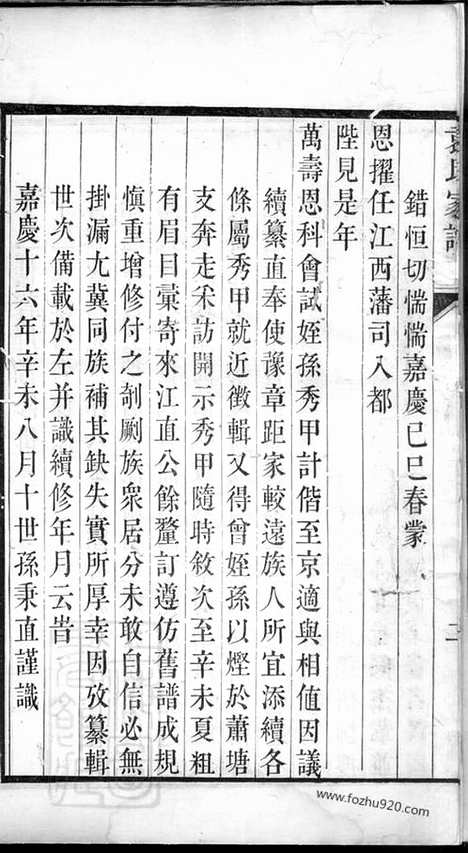 袁氏家譜
二
錯恒切惴惴嘉慶己巳春蒙
恩擢任江西藩司入都
陛見是年
萬壽恩科會試姪孫秀甲計偕至京適與相值因議
續纂直奉使豫章距家較遠族人所宜添續各
條屬秀甲就近徵輯又得曾姪孫以煙於蕭塘
支奔走采訪開示秀甲隨時敘次至辛未夏粗
有眉目彚寄來江直公餘釐訂遵仿舊譜成規
愼重增修付之剞劂族衆居分未敢自信必無
掛漏尢冀同族補其缺失實所厚幸因攷纂輯
世次備載於左并識續修年月云告
嘉慶十六年辛未八月十世孫秉直謹識
www.fozhu920.com